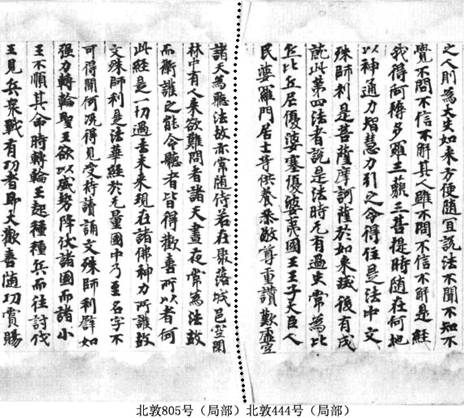 之人則為大失如來方便隨宜說法不聞不知不
覺不問不信不解其人雖不問不信不解是經
我得阿耨多羅三藐三菩提時隨在何地
以神通力智慧力引之令得住是法中文
殊師利是菩薩摩訶薩於如來滅後有成
就此第四法者說是法時无有過失常為比
丘比丘尼優婆塞優婆夷國王王子大臣人
民婆羅門居士等供養恭敬尊重讚歎虛空
諸天為聽法故亦常隨侍若在聚落城邑空閑
林中有人來欲難問者諸天晝夜常為法故
而衛護之能令聽者皆得歡喜所以者何
此經是一切過去未來現在諸佛神力所護故
文殊師利是法華經於无量國中乃至名字不
可得聞何況得見受持讀誦文殊師利譬如
强力轉輪聖王欲以威勢降伏諸國而諸小
王不順其命時轉輪王起種種兵而往討伐
王見兵衆戰有功者即大歡喜隨功賞賜
北敦805号（局部）北敦444号（局部）